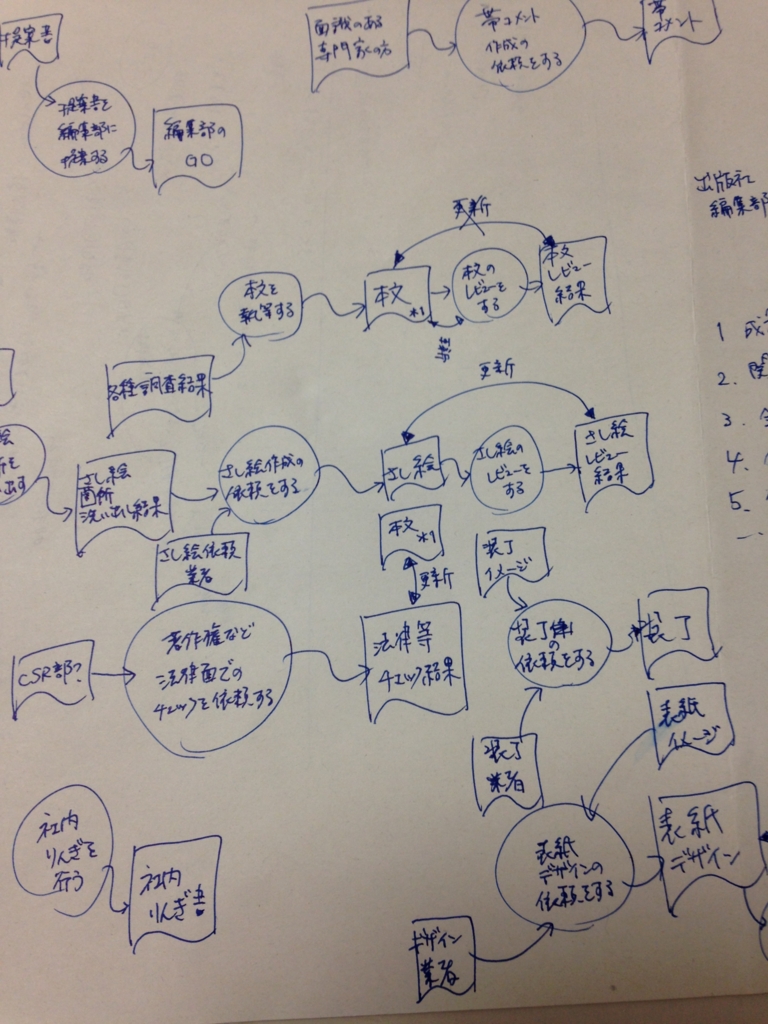 提案書
提案書を
編集部に
提案する
編集部の
GO
面識のある
専門家の方
帯コメント
作成の
依頼をする
帯
コメント
出版社
編集部
更新
本文を
執筆する
本文
*1
本文の
レビューを
する
本文
レビュー
結果
各種調査結果
更新
さし絵
箇所
洗い出し結果
さし絵作成の
依頼をする
さし絵
さし絵の
レビューを
する
さし絵
レビュー
結果
さし絵依頼
業者
本文
*1
更新
装丁
イメージ
CSR部?
著作権など
法律面での
チェックを依頼する
法律等
チェック結果
装丁
の
依頼をする
装丁
装丁
業者
表紙
イメージ
表紙
デザインの
依頼をする
表紙
デザイン
デザイン
業者
社内
りんぎを
行う
社内
りんぎ書
1
2.
3.
4.
5.